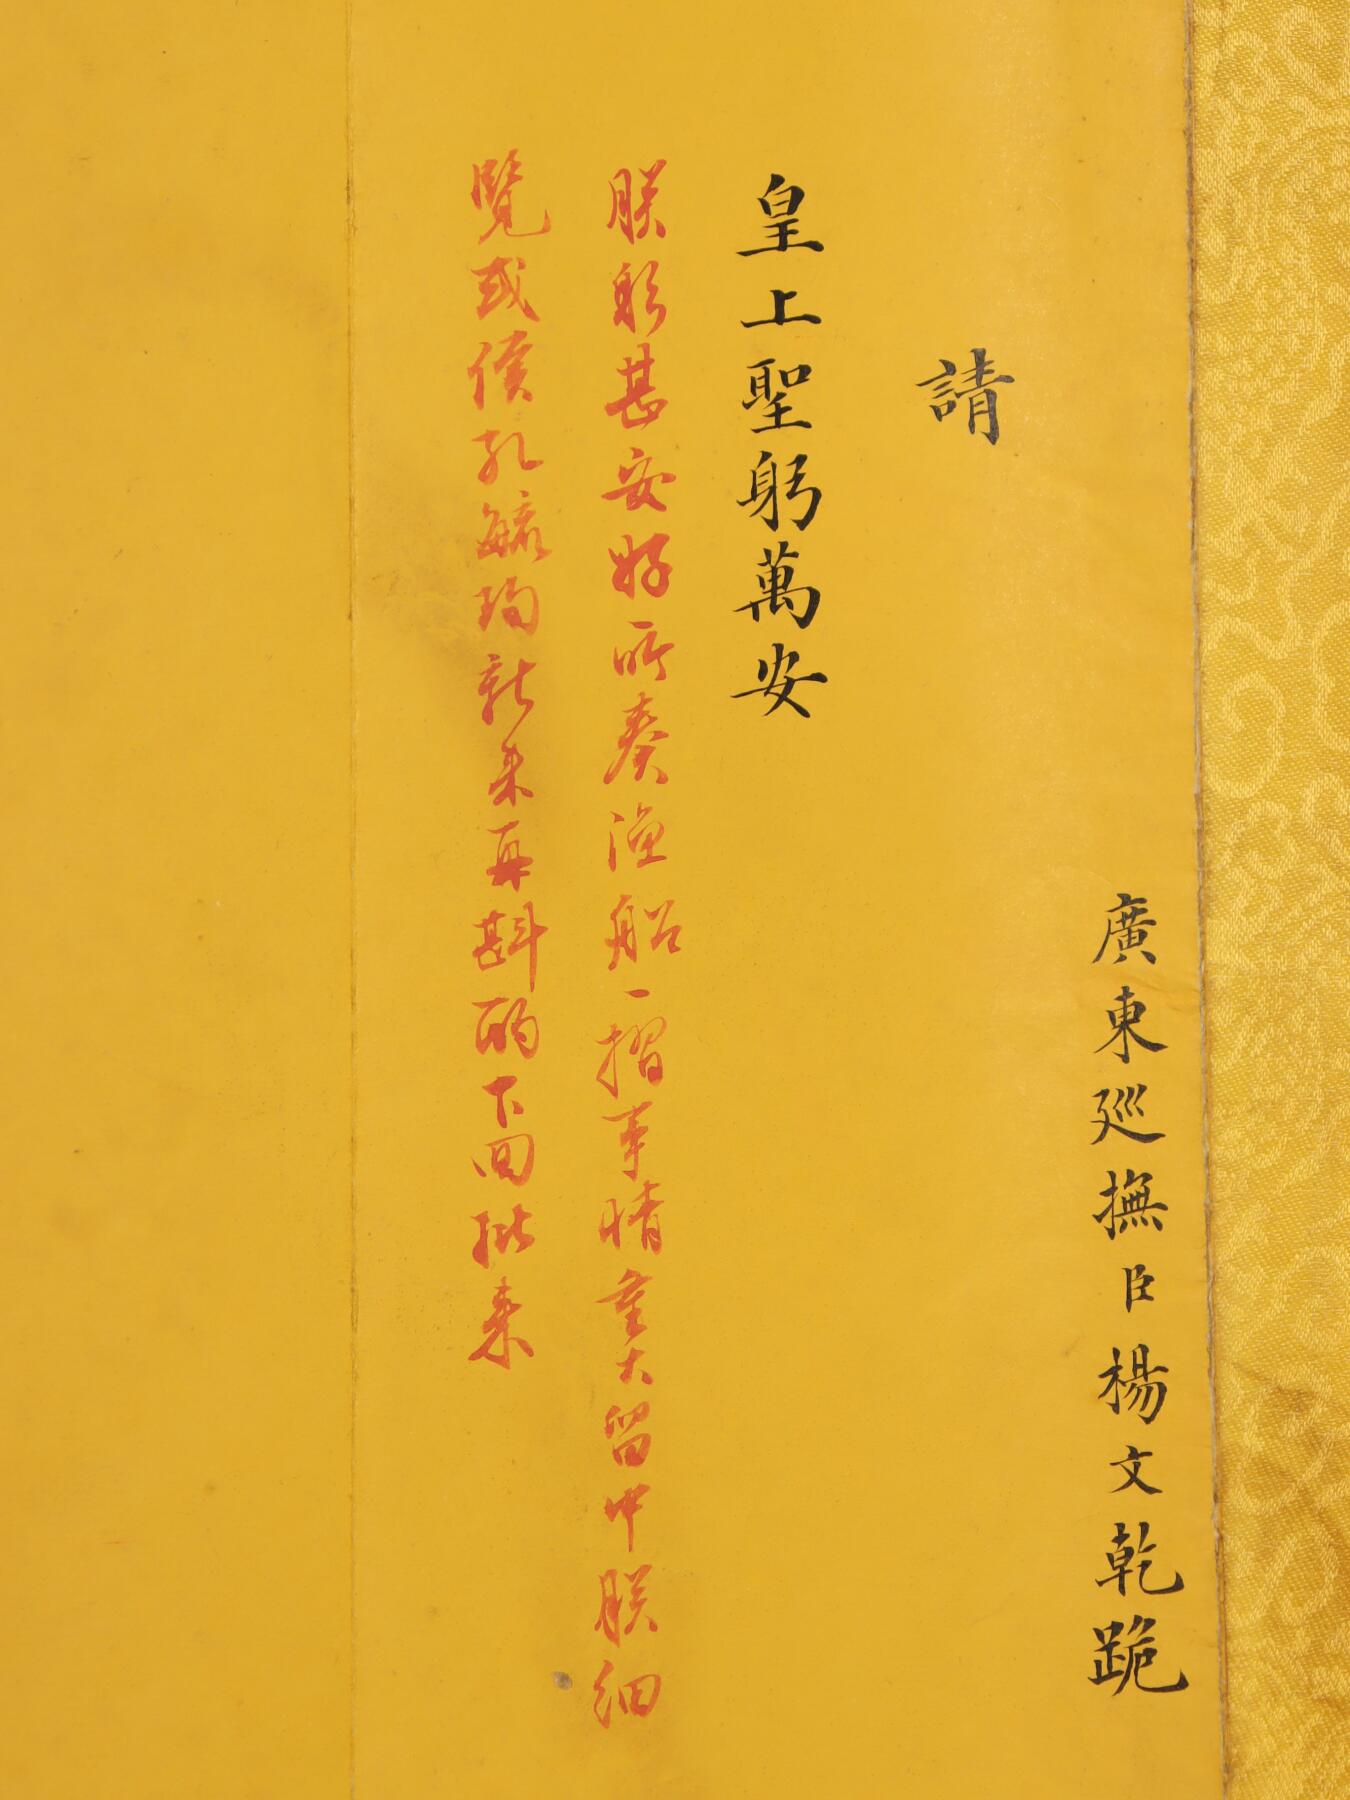 廣東廵撫臣楊文乾跪
請
皇上聖躬萬安
朕躬甚安好所奏漁船一摺事情重大留中朕細
覽或俟孔毓珣新來再斟酌下回批來